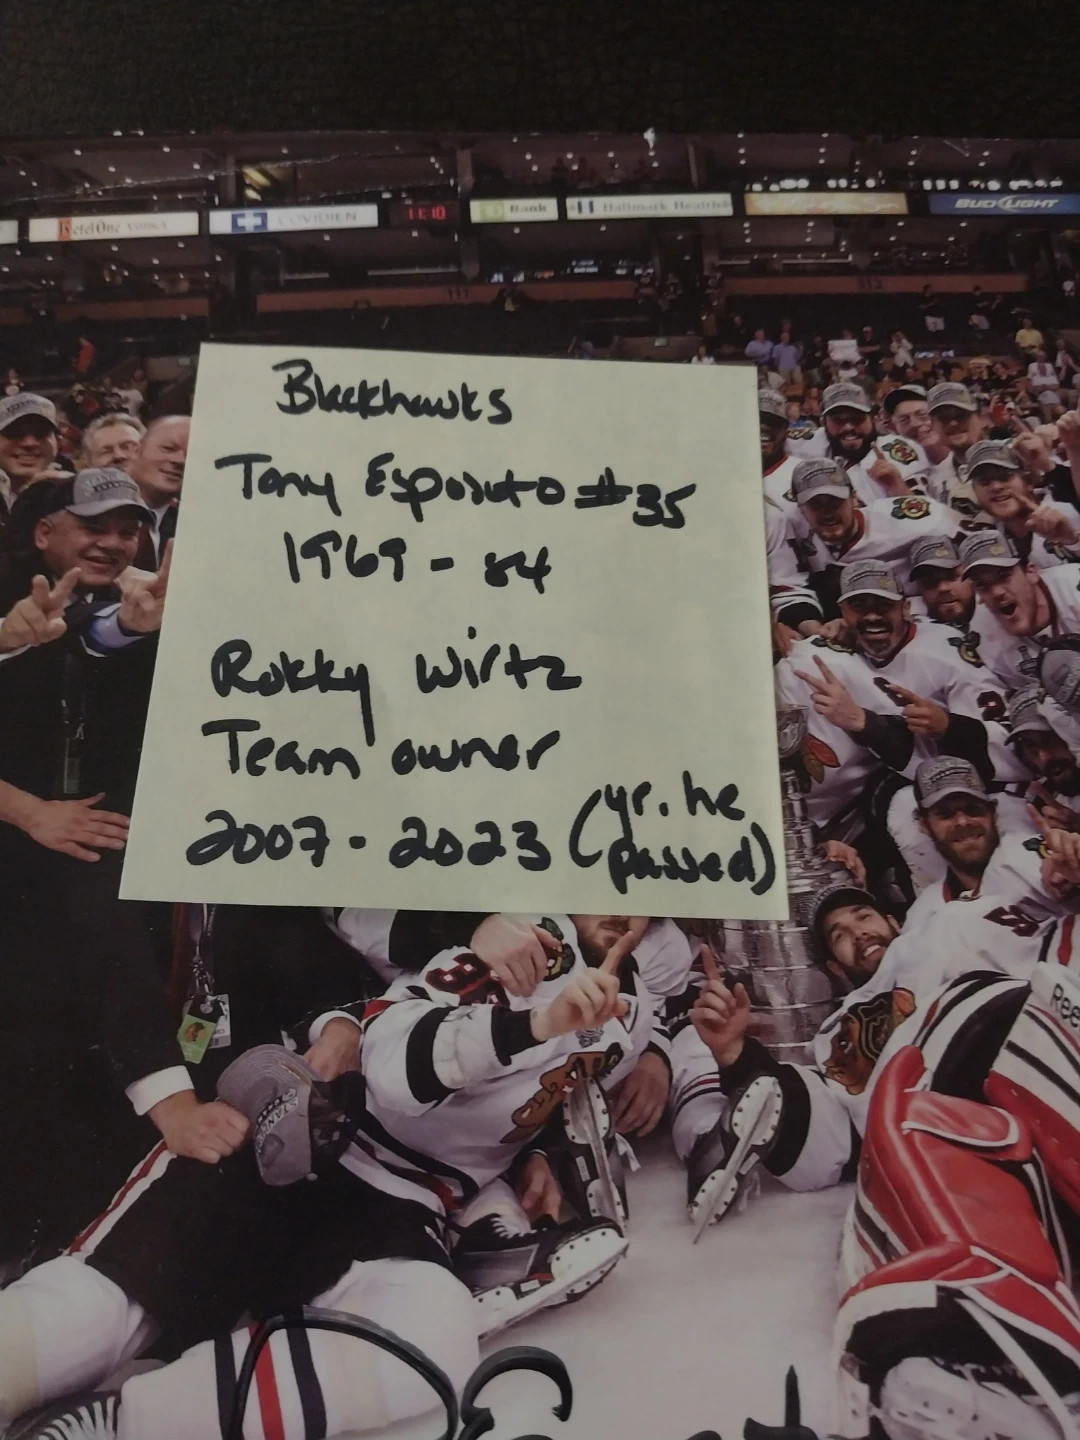 Ketel One VODKA
COVIDIEN
11:10
Bank
Hallmark Health
BUD LIGHT
Blackhawks
Tony Esposuto #35
1969 - 84
Rokky Wirtz
Team owner
2007 - 2023 (yr. he
passed)
Ree